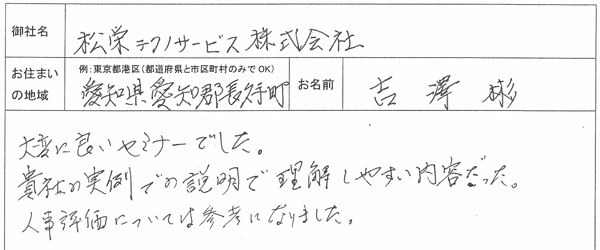 御社名 松栄テクノサービス株式会社
例:東京都港区(都道府県と市区町村のみでOK)
お住まいの地域 愛知県愛知郡長久手町 お名前 吉澤 彬
大変に良いセミナーでした。
貴社の実例での説明で理解しやすい内容だった。
人事評価については参考になりました。